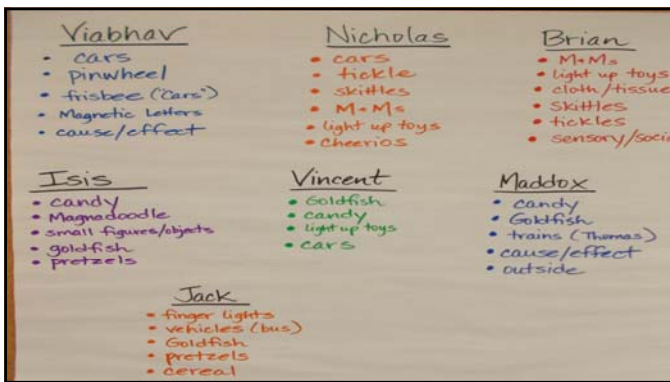 Viabhav
• cars
• pinwheel
• frisbee ("Cars")
• Magnetic Letters
• cause/effect
Nicholas
• cars
• tickle
• skittles
• M+Ms
• light up toys
• cheerios
Brian
• M+Ms
• light up toys
• cloth/tissue
• skittles
• tickles
• sensory/soci
Isis
• candy
• Magnadoodle
• small figures/objects
• goldfish
• pretzels
Vincent
• Goldfish
• candy
• light up toys
• cars
Maddox
• candy
• Goldfish
• trains (Thomas)
• cause/effect
• outside
Jack
• finger lights
• vehicles (bus)
• Goldfish
• pretzels
• cereal